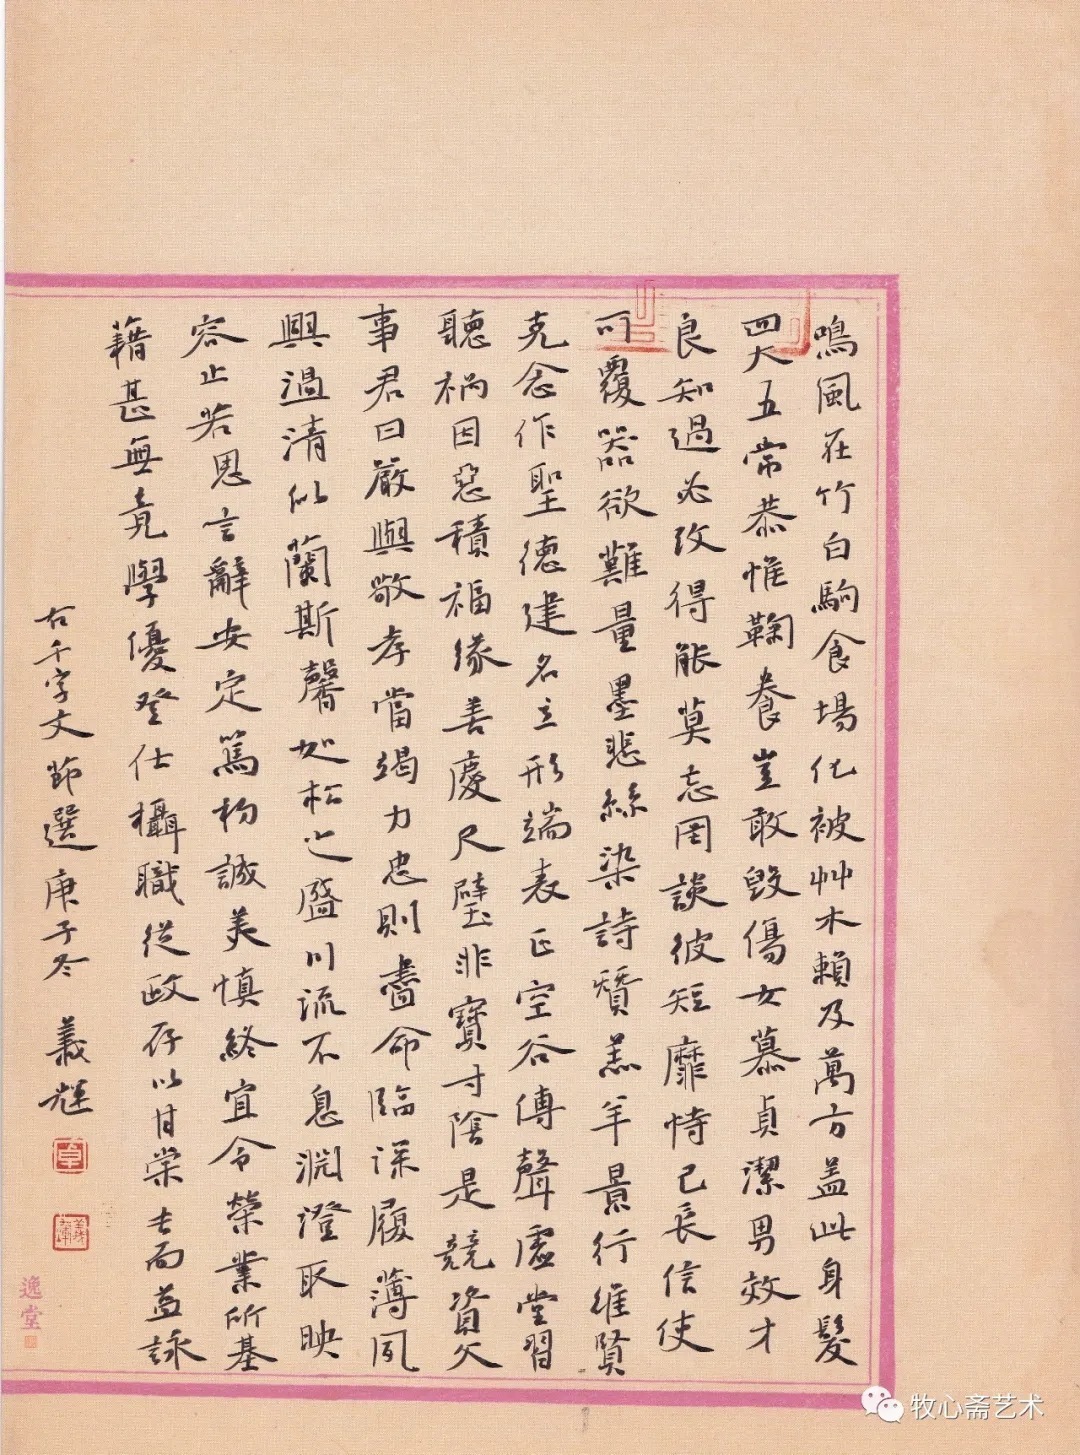 鳴風在竹白駒食場化被艸木賴及萬方盖此身髮
四大五常恭惟鞠養豈敢毀傷女慕貞潔男效才
良知過必改得能莫忘罔談彼短靡恃己長信使
可覆器欲難量墨悲絲染詩讚羔羊景行維賢
克念作聖德建名立形端表正空谷傳聲虛堂習
聽禍因惡積福緣善慶尺璧非寶寸陰是競資父
事君曰嚴與敬孝當竭力忠則盡命臨深履薄夙
興溫清似蘭斯馨如松之盛川流不息淵澄取映
容止若思言辭安定篤初誠美慎終宜令榮業所基
藉甚無竟學優登仕攝職從政存以甘棠去而益詠
右千字文節選庚子冬 義輝
逸堂
牧心斋艺术